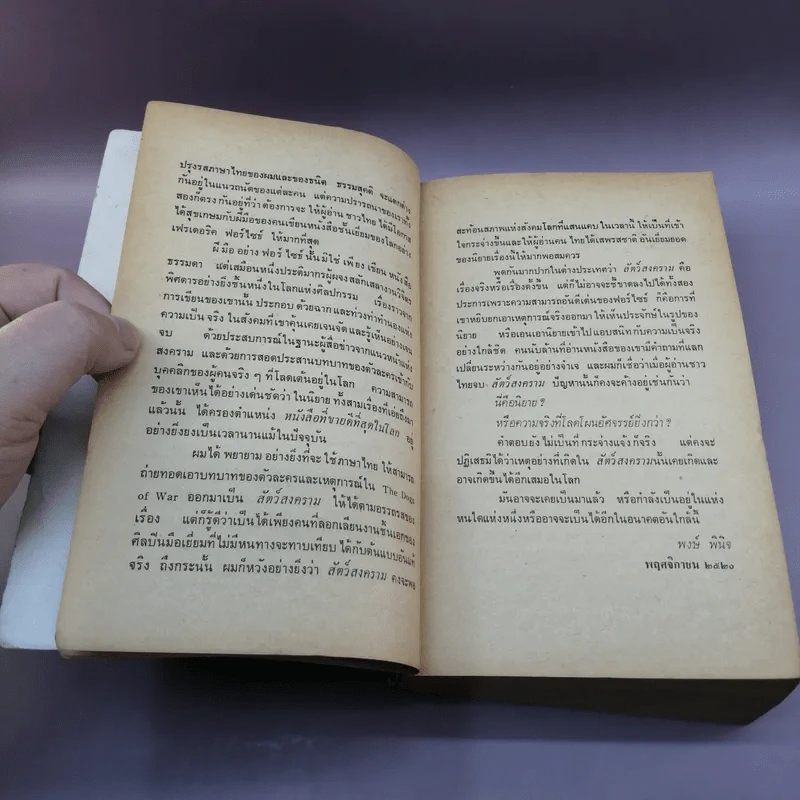 ปรุงรสภาษาไทยของผมและของธนิต ธรรมสุคติ จะแตกต่าง
กันอยู่ในแนวถนัดของแต่ละคน แต่ความปรารถนาของเราทั้ง
สองก็ตรงกันอยู่ที่ว่า ต้องการจะ ให้ผู้อ่าน ชาวไทย ได้มีโอกาส
ได้สุขเกษมกับฝีมือของคนเขียนหนังสือชั้นเยี่ยมของโลกอย่าง
เฟรเดอริค ฟอร์ไซธ์ ให้มากที่สุด
ฝีมือ อย่าง ฟอร์ไซธ์ นั้น มิใช่ เพียง เขียน หนังสือ
ธรรมดา แต่เสมือนหนึ่งประติมากรผู้ผจงสลักเสลางานวิจิตร
พิศดารอย่างยิ่งชิ้นหนึ่งในโลกแห่งศิลปกรรม เรื่องราวจาก
การเขียนของเขานั้น ประกอบ ด้วยฉาก และท่วงท่าทำนองแห่ง
ความเป็น จริง ในสังคมที่ เขาคุ้นเคยเจนจัด และรู้เห็นอย่างเจน
จบ ด้วยประสบการณ์ในฐานะผู้สื่อข่าวจากแนวหน้าแห่ง
สงคราม และด้วยการสอดประสานบทบาทของตัวละครเข้ากับ
บุคคลิกของผู้คนจริง ๆ ที่โลดเต้นอยู่ในโลก ความสามารถ
ของเขาเห็นได้อย่างเด่นชัดว่า ในนิยาย ทั้งสามเรื่องที่เอ่ยถึงมา
แล้วนั้น ได้ครองตำแหน่ง หนังสือที่ขายดีที่สุดในโลก อยู่
อย่างยั่งยงเป็นเวลานานแม้ในปัจจุบัน
ผมได้ พยายาม อย่างยิ่งที่จะ ใช้ภาษาไทย ให้สามารถ
ถ่ายทอดเอาบทบาทของตัวละครและเหตุการณ์ใน The Dogs
of War ออกมาเป็น สัตว์สงคราม ให้ได้ตามอรรถรสของ
เรื่อง แต่ก็รู้ดีว่าเป็นได้เพียงคนที่ลอกเลียนงานชิ้นเอกของ
ศิลปินมือเยี่ยมที่ไม่มีหนทางจะทาบเทียบ ได้กับต้นแบบอันแท้
จริง ถึงกระนั้น ผมก็หวังอย่างยิ่งว่า สัตว์สงคราม คงจะพอ
สะท้อนสภาพแห่งสังคมโลกที่แสนแคบ ในเวลานี้ ให้เป็นที่เข้า
ใจกระจ่างขึ้นและให้ผู้อ่านคน ไทยได้เสพรสชาติ อันเยี่ยมยอด
ของนิยายเรื่องนี้ให้มากพอสมควร
พูดกันมากปากในต่างประเทศว่า สัตว์สงคราม คือ
เรื่องจริงหรือเรื่องตั้งขึ้น แต่ก็ไม่อาจจะชี้ขาดลงไปได้ทั้งสอง
ประการเพราะความสามารถอันดีเด่นของฟอร์ไซธ์ ก็คือการที่
เขาหยิบยกเอาเหตุการณ์จริงออกมา ให้เห็นประจักษ์ในรูปของ
นิยาย หรือเอนเอานิยายเข้าไป แอบสนิท กับความเป็นจริง
อย่างใกล้ชิด คนนับล้านที่อ่านหนังสือของเขามีคำถามที่แลก
เปลี่ยนระหว่างกันอยู่อย่างจำเจ และผมก็เชื่อว่าเมื่อผู้อ่านชาว
ไทยจบ สัตว์สงคราม ปัญหานั้นก็คงจะค้างอยู่เช่นกันว่า
นี่คือนิยาย ?
หรือความจริงที่โลดโผนอัศจรรย์ยิ่งกว่า ?
คำตอบยัง ไม่เป็นที่ กระจ่างแจ้ง ก็จริง แต่คงจะ
ปฏิเสธมิได้ว่าเหตุอย่างที่เกิดใน สัตว์สงครามนั้นเคยเกิดและ
อาจเกิดขึ้นได้อีกเสมอในโลก
มันอาจจะเคยเป็นมาแล้ว หรือกำลังเป็นอยู่ในแห่ง
หนใดแห่งหนึ่งหรืออาจจะเป็นได้อีกในอนาคตอันใกล้นี้
พงษ์ พินิจ
พฤศจิกายน ๒๕๒๐